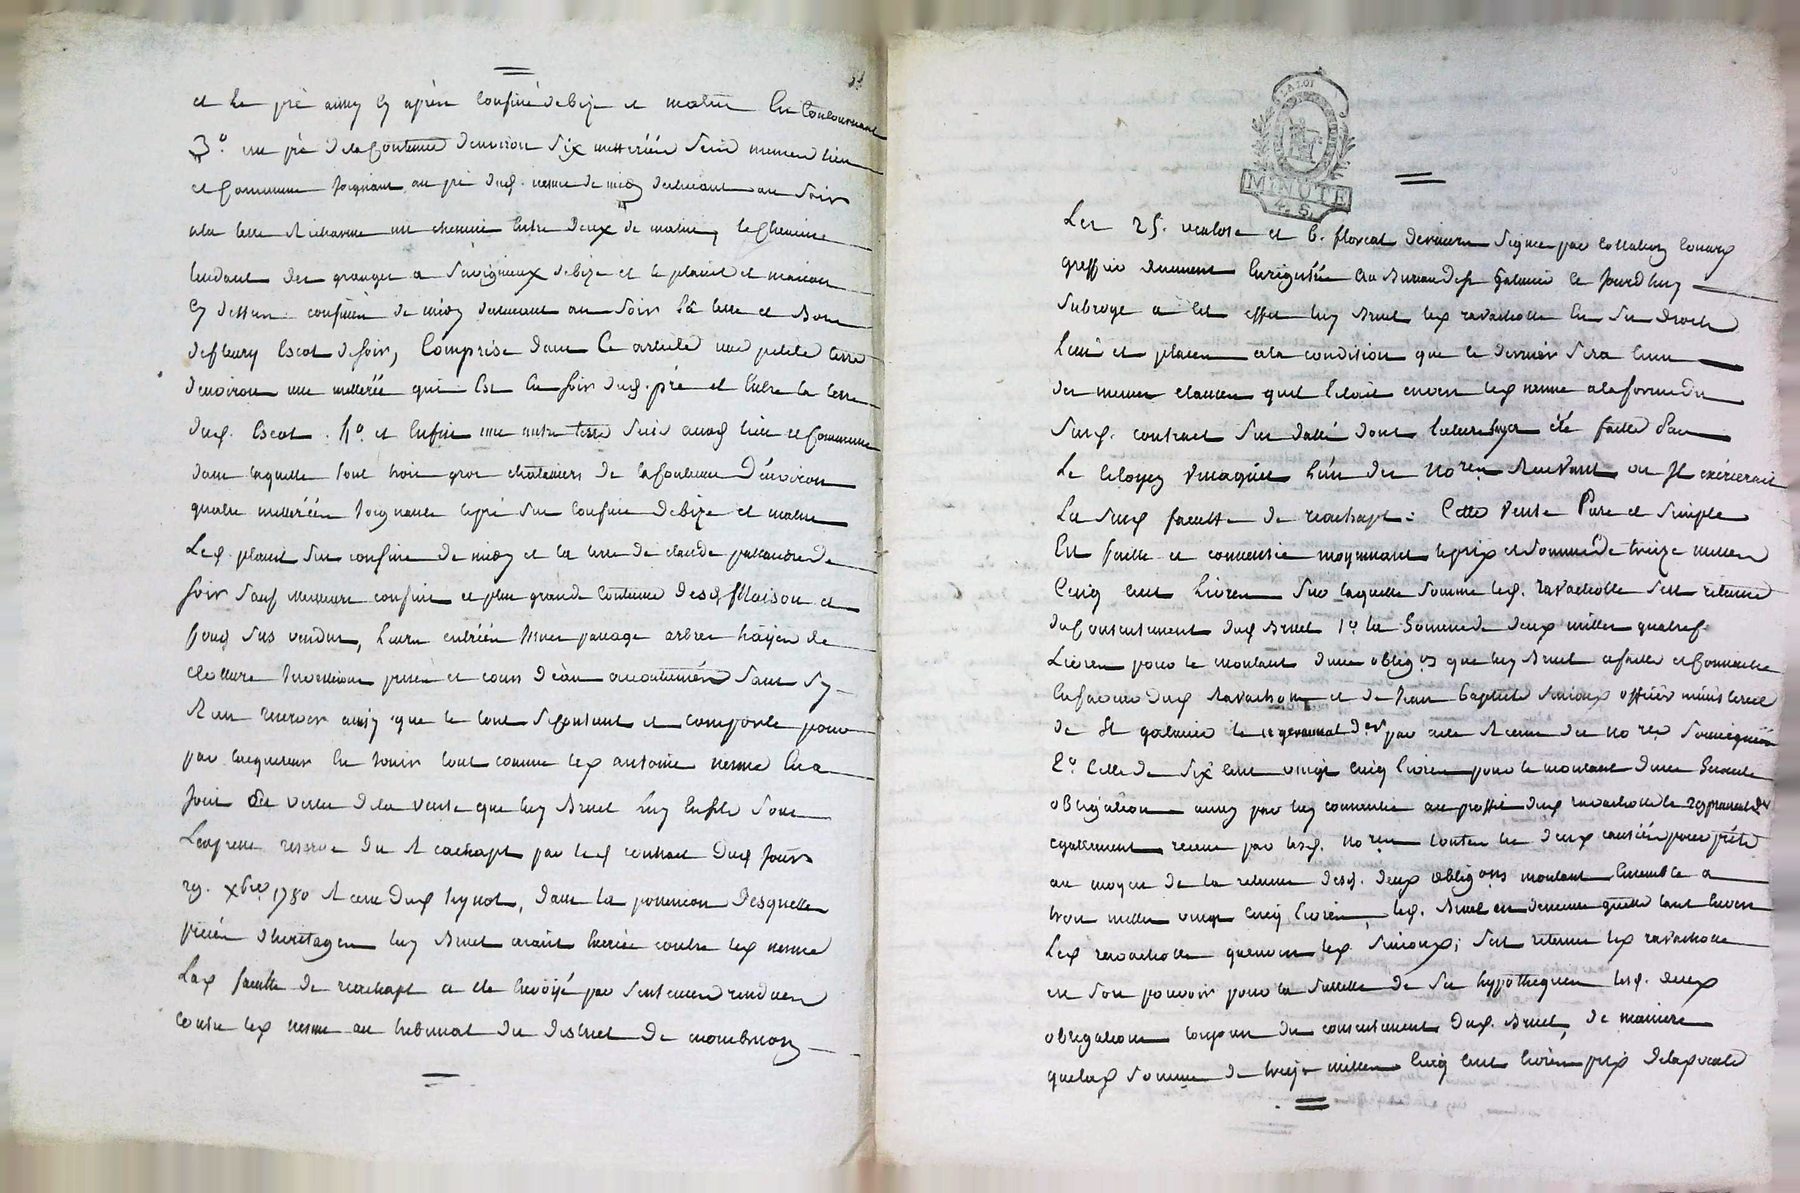 et le pré aussy cy après confiné de bize et matin en contournant
3°. un pré de la Contenue d'environ six metterées scis mesmes lieu
et Commune joignant au pré dud. nesme de midy declinant au soir
a la terre un chemin entre deux de matin, le Chemin
tendant des granges a Savigneux de bize et le plassit et maison
cy dessus confinés de midy declinant au soir la terre et
de fleury Escot de soir, Comprise dans Ce article une petite terre
d'environ une metterée qui est en soir dud. pré et entre la terre
dud. Escot. 4°. et Enfin une autre terre scise aud lieu et Commune
dans laquelle sont trois gros chataniers de la Contenue D'environ
quatre metterées joignante le pré sus confiné de bize et matin
Led. plassit sus confiné de midy et la terre de claude de
soir sauf meilleurs confins et plus grande Contenue desd. Maison et
fonds sus vendus, Leurs entrées issues passage arbres hayes de
clotture prises et cours d'eau accoutumés sans s'y
rien reserver ainsy que le tout se Contient et comporte pour
par lacquereur en jouir tout comme led antoine nesme en a
joui en vertu de la vente que luy Bruel luy en fit sous
L'expresse reserve du Reachapt par led contract dud jour
29. xbre 1780 Receu dud , dans la possession Desquelles
pieces d'heritages luy Bruel ayant contre led nesme
Lad faculté de reachapt a été envoyé par sentences rendues
contre led nesme au tribunal du district de montbrison
LA LOI
MINUTE
4. S.
Les 25. ventose et 6. floreal derniers signée par
greffier duement Enregistrée au Bureau de st galmier ce jourdhuy
subroge a cet effet luy Bruel led ravacholle en ses droits
Lieu et places a la condition que ce dernier sera tenu
des mesmes clauses quil l'etait envers led nesme a la forme du
susd. contract sus datté dont lecture luy a été faitte par
Le citoyen l'un des nores Recevant ou Il exercerait
La susd faculté de reachapt: Cette Vente Pure et simple
Est faitte et convenue moyennant le prix et somme de treize milles
Cinq cent Livres sur laquelle somme led. ravacholle s'est retenu
du Consentement dud Bruel 1° la Somme de deux milles quatre
Livres pour le montant d'une obligon que luy Bruel a faitte et Consentie
en faveur dud Ravacholle et de Jean Baptiste Simoux officier ministeriel
de St galmier le 11 germinal der par acte Receu des nores soussignés
2° Celle de six cent vingt cinq livres pour le montant d'une Seconde
obligation aussy par luy consentie au proffit dud ravacholle le 29 prairial der
egallement receue par lesd. nores toutes les deux causées pour prêt
au moyen de la retenue desd. deux obligons montant Ensemble a
trois milles vingt cinq livres, led. Bruel en demeure quitte tant envers
Led ravacholle quenvers led Simoux; s'est retenu led ravacholle
en son pouvoir pour la surette de ses hypotheques lesd. deux
obligations toujours du consentement dud. Bruel, de maniere
que lad somme de treize milles cinq cent livres prix de lad vente